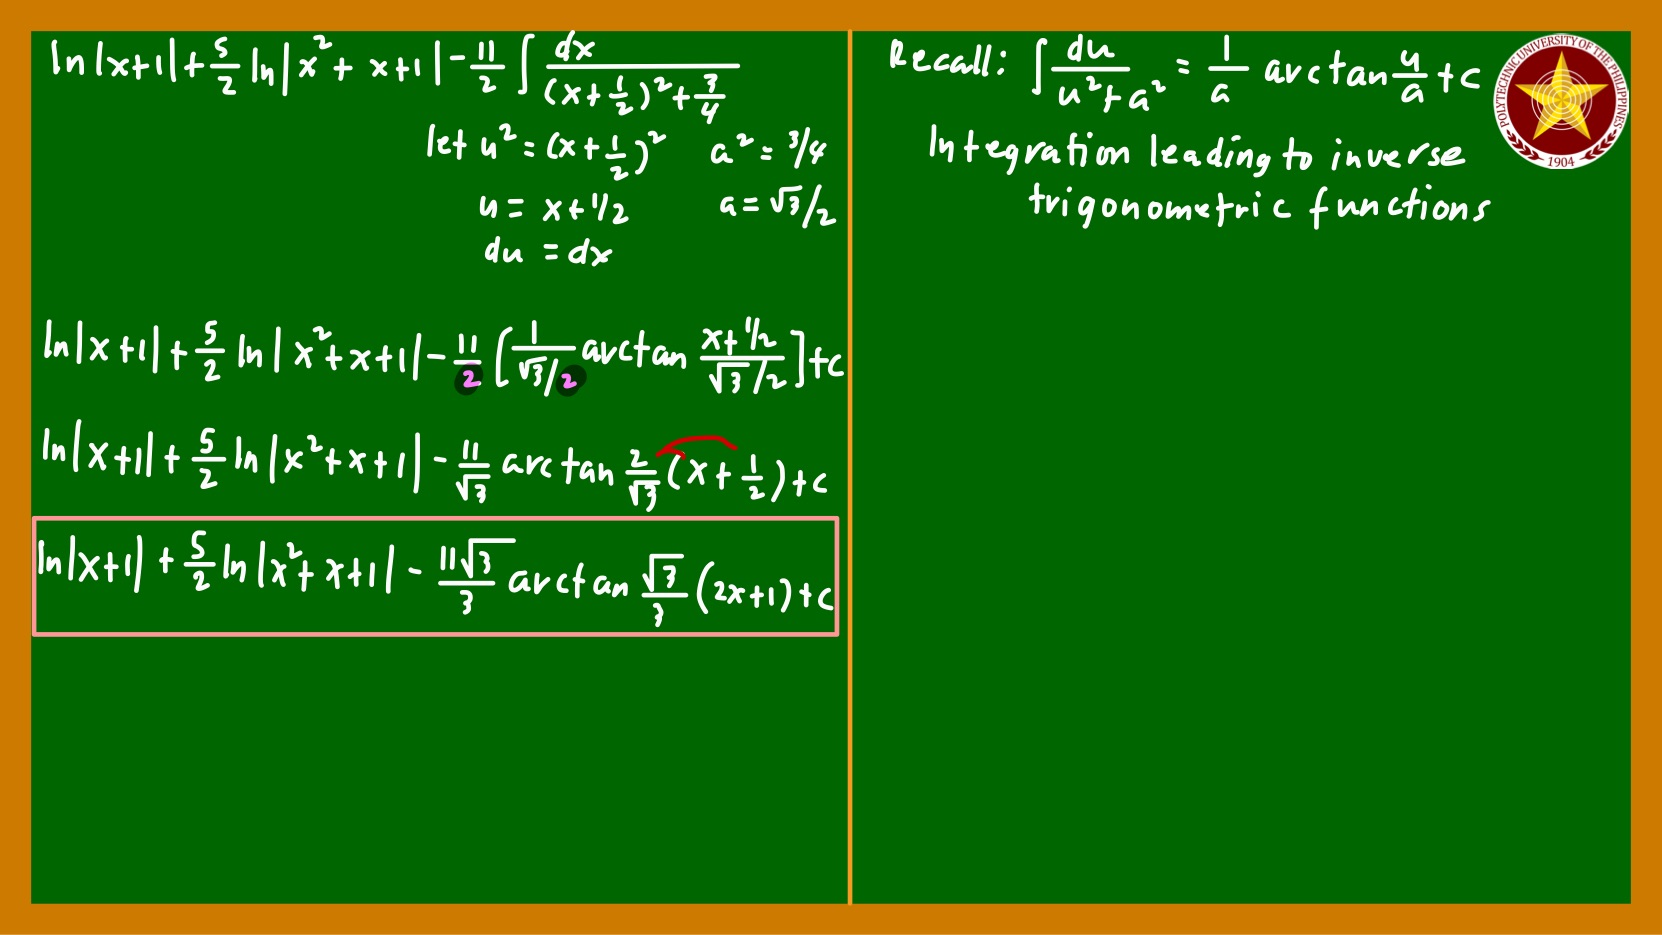 ln|x+1| + 5/2 ln|x² + x+1| - 11/2 ∫ dx/((x+1/2)² + 3/4)
let u² = (x+1/2)² a² = 3/4
u = x+1/2 a = √3/2
du = dx
ln|x+1| + 5/2 ln|x²+x+1| - 11/2 [1/(√3/2) arctan (x+1/2)/(√3/2)] + c
ln|x+1| + 5/2 ln|x²+x+1| - 11/√3 arctan 2/√3 (x+1/2) + c
ln|x+1| + 5/2 ln|x²+x+1| - 11√3/3 arctan √3/3 (2x+1) + c
Recall: ∫ du/(u²+a²) = 1/a arctan u/a + c
Integration leading to inverse
trigonometric functions
POLYTECHNIC UNIVERSITY OF THE PHILIPPINES
1904